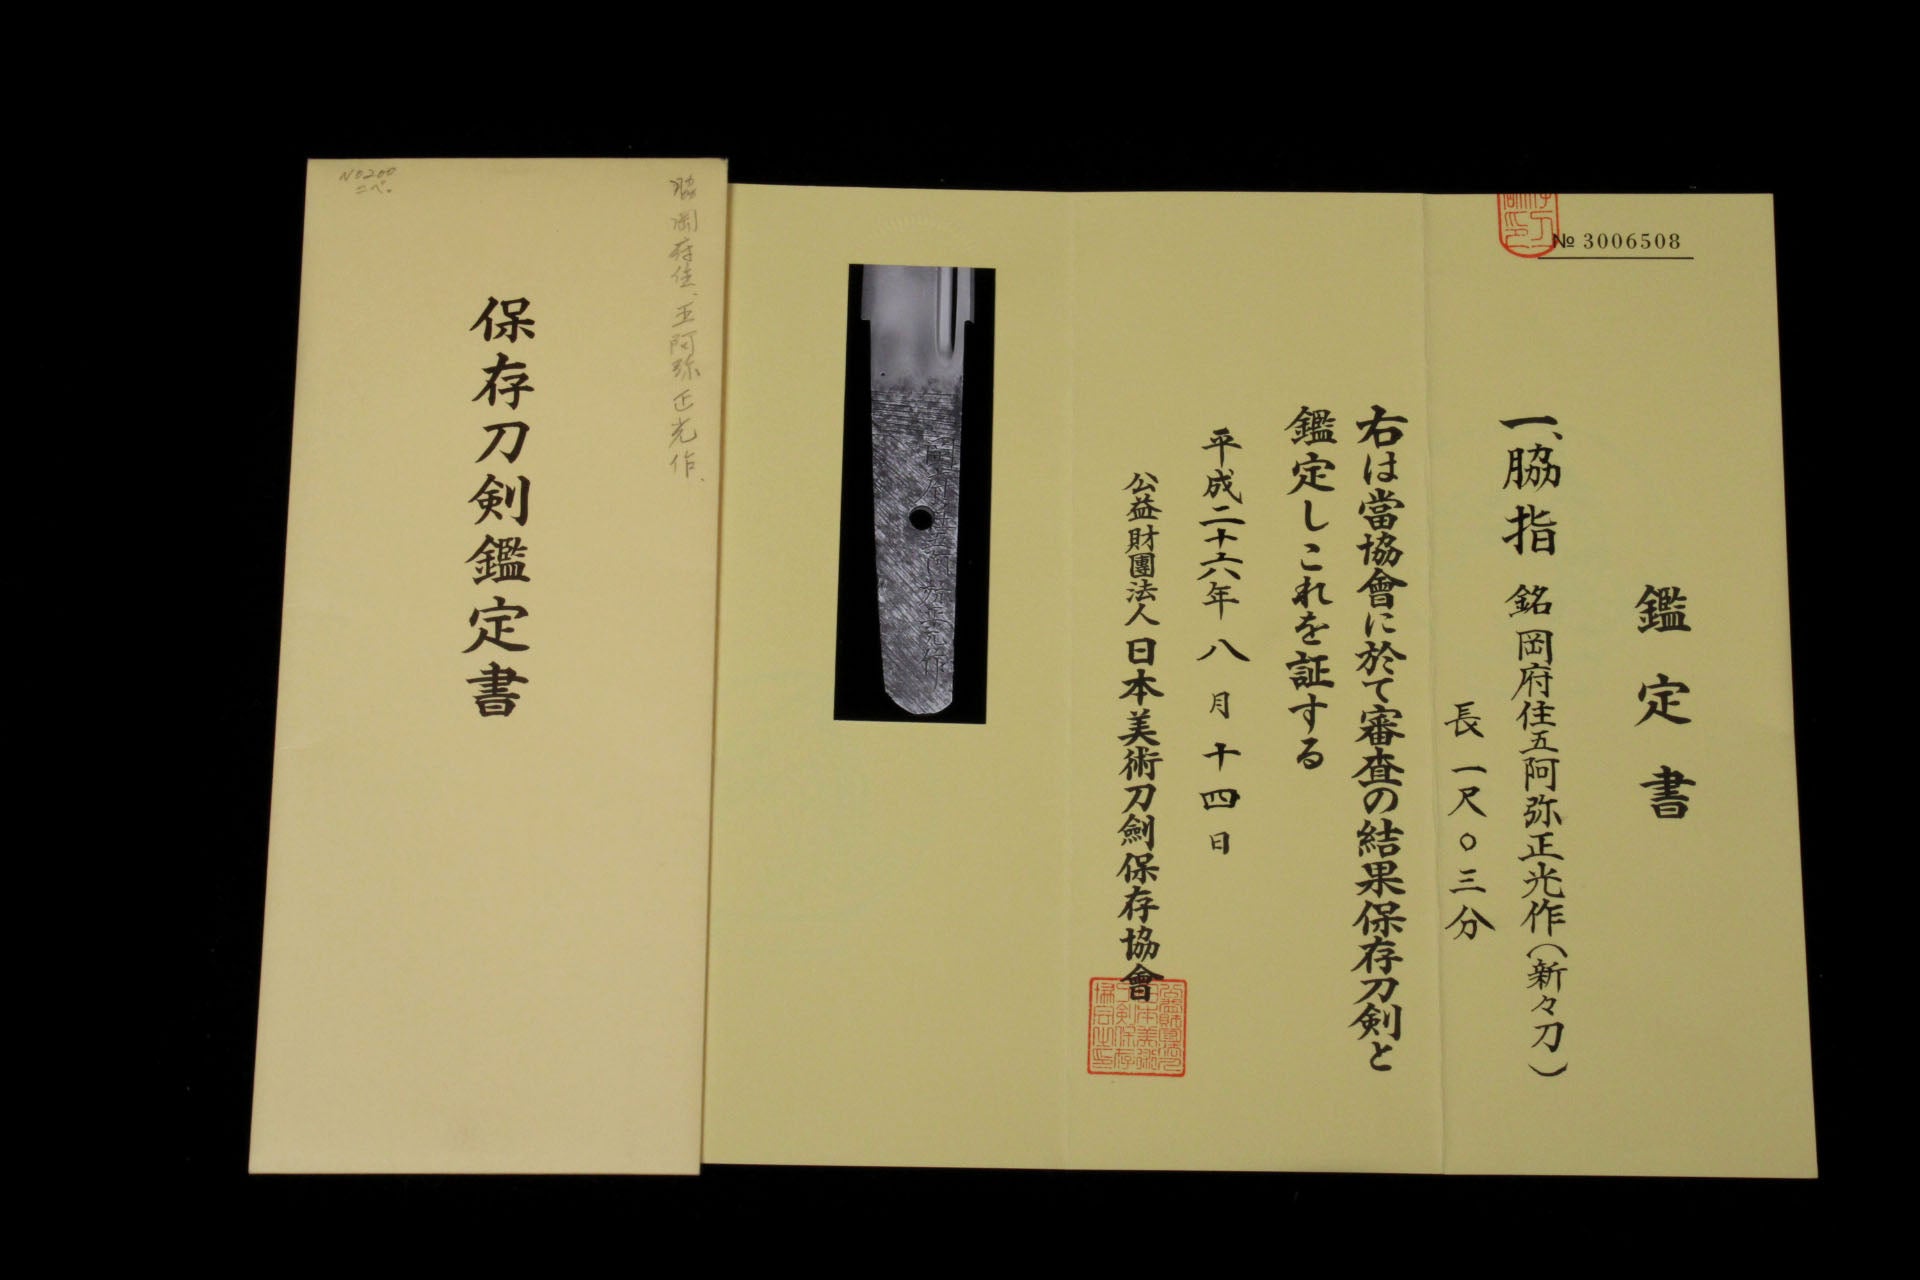 № 3006508
鑑定書
一、脇指 銘 岡府住五阿弥正光作(新々刀)
長一尺〇三分
右は當協會に於て審査の結果保存刀剣と
鑑定しこれを証する
平成二十六年八月十四日
公益財團法人 日本美術刀劍保存協會
岡府住五阿弥正光作
脇 岡府住、五阿弥正光作、
保存刀剣鑑定書
No200